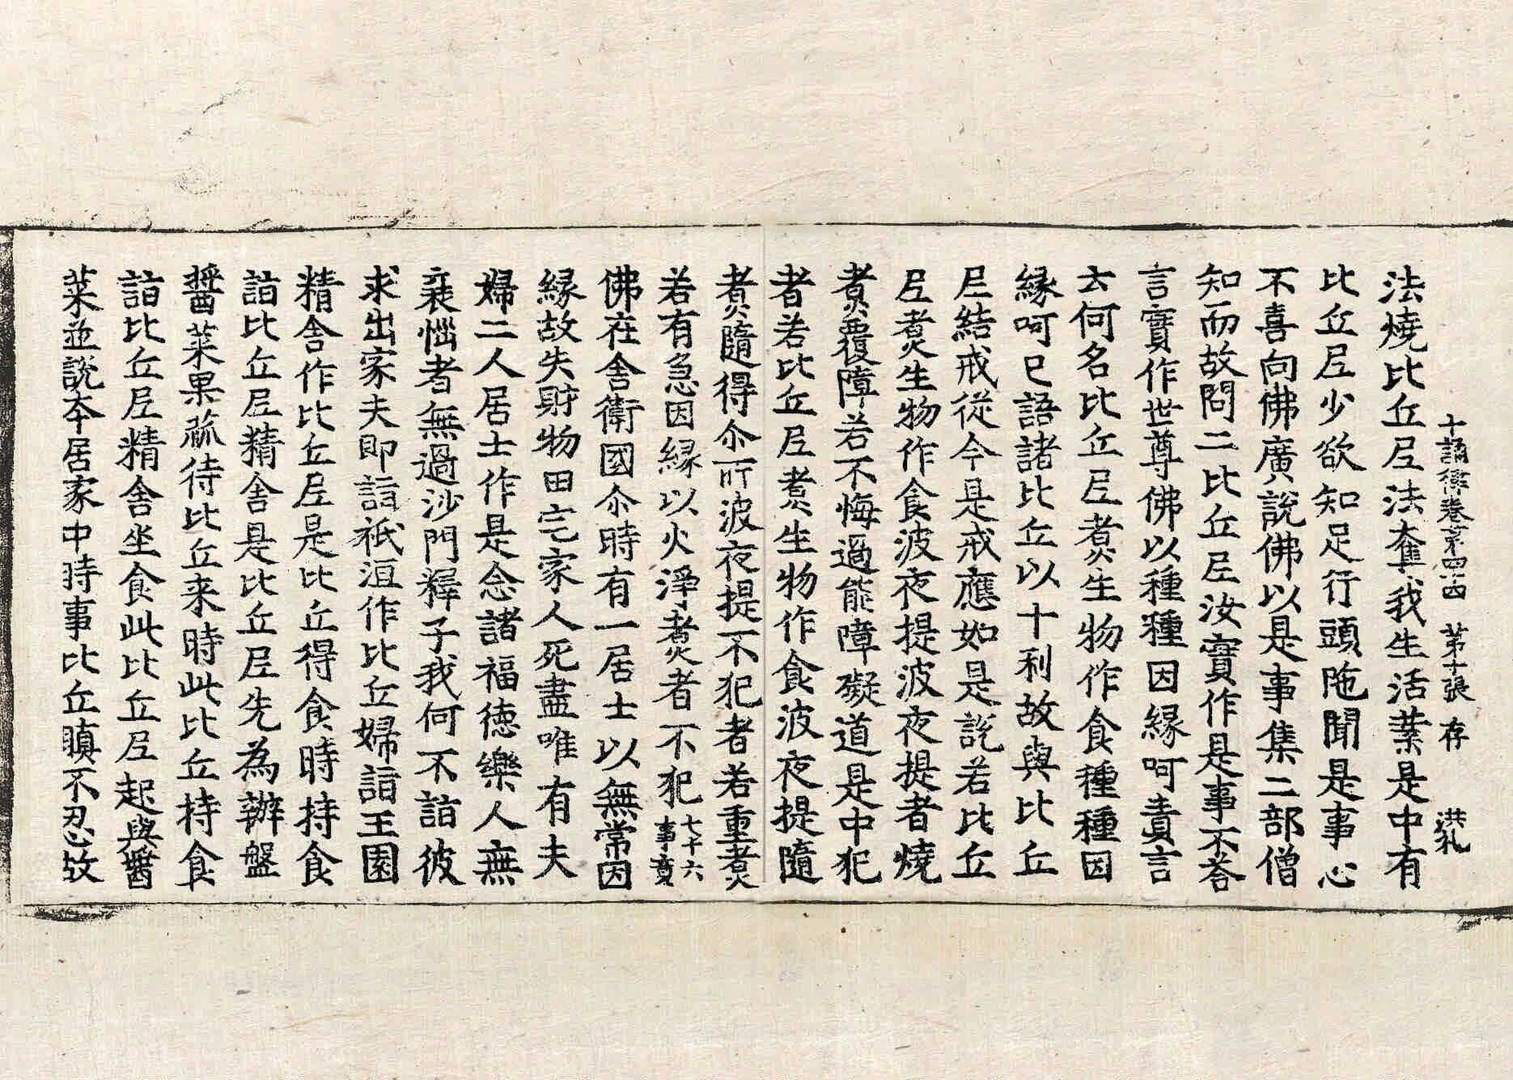 十誦律卷第四四　第十張　存　洪札
法燒比丘尼法奪我生活業是中有
比丘尼少欲知足行頭陁聞是事心
不喜向佛廣說佛以是事集二部僧
知而故問二比丘尼汝實作是事不荅
言實作世尊佛以種種因緣呵責言
云何名比丘尼煑生物作食種種因
緣呵已語諸比丘以十利故與比丘
尼結戒從今是戒應如是說若比丘
尼煑生物作食波夜提波夜提者燒
煑覆障若不悔過能障礙道是中犯
者若比丘尼煑生物作食波夜提隨
煑隨得尒所波夜提不犯者若重煑
若有急因緣以火淨煑者不犯七十六事竟
佛在舍衛國尒時有一居士以無常因
緣故失財物田宅家人死盡唯有夫
婦二人居士作是念諸福德樂人無
衰惱者無過沙門釋子我何不詣彼
求出家夫即詣祇洹作比丘婦詣王園
精舍作比丘尼是比丘得食時持食
詣比丘尼精舍是比丘尼先為辦盤
醬菜果蓏待比丘来時此比丘持食
詣比丘尼精舍坐食此比丘尼起與醬
菜並說本居家中時事比丘瞋不忍故